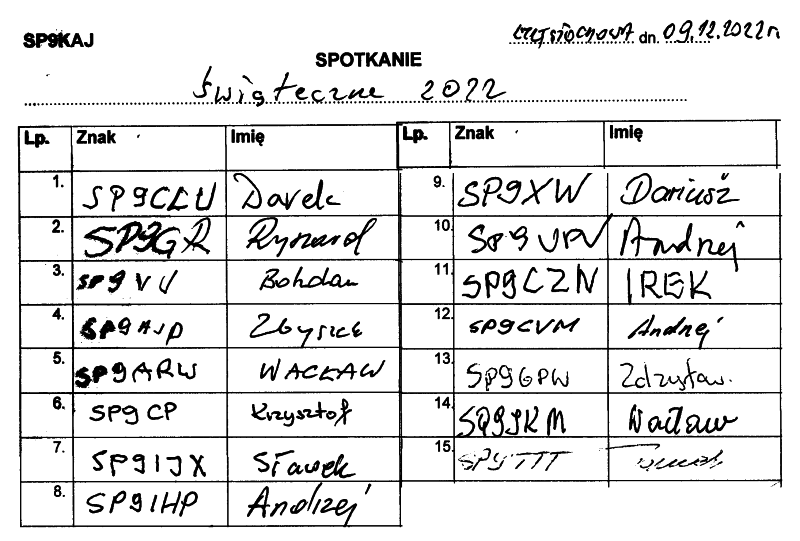 SP9KAJ
CZĘSTOCHOWA dn. 09.12.2022r
SPOTKANIE
Świąteczne 2022
Lp. Znak Imię
1. SP9CLU Darek
2. SP9GR Ryszard
3. SP9VU Bohdan
4. SP9AJD Zbyszek
5. SP9ARW WACŁAW
6. SP9CP Krzysztof
7. SP9IJX Sławek
8. SP9IHP Andrzej
Lp. Znak Imię
9. SP9XW Dariusz
10. SP9UPV Andrzej
11. SP9CZN IREK
12. SP9CVM Andrzej
13. SP9GPW Zdzysław.
14. SQ9JKM Wacław
15. SP9TTT